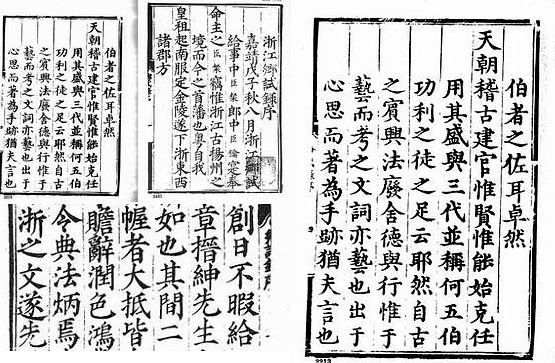 伯者之佐耳卓然
天朝稽古建官惟賢惟能始克任
用其盛與三代並稱何五伯
功利之徒之足云耶然自古
之賓興法廢舍德與行惟于
藝而考之文詞亦藝也出于
心思而著為手跡猶夫言也
浙江鄉試錄序
嘉靖戊子秋八月浙江鄉試
給事中臣粲郎中臣
命主之臣粲竊惟浙江古揚州之
境而今之首藩也粵自我
皇祖起南服定金陵遂下浙東西
諸郡方
創日不暇給
章搢紳先生
如也其間二
幄者大抵皆
贍辭潤色鴻
令典法炳焉
浙之文遂先
伯者之佐耳卓然
天朝稽古建官惟賢惟能始克任
用其盛與三代並稱何五伯
功利之徒之足云耶然自古
之賓興法廢舍德與行惟于
藝而考之文詞亦藝也出于
心思而著為手跡猶夫言也
2213